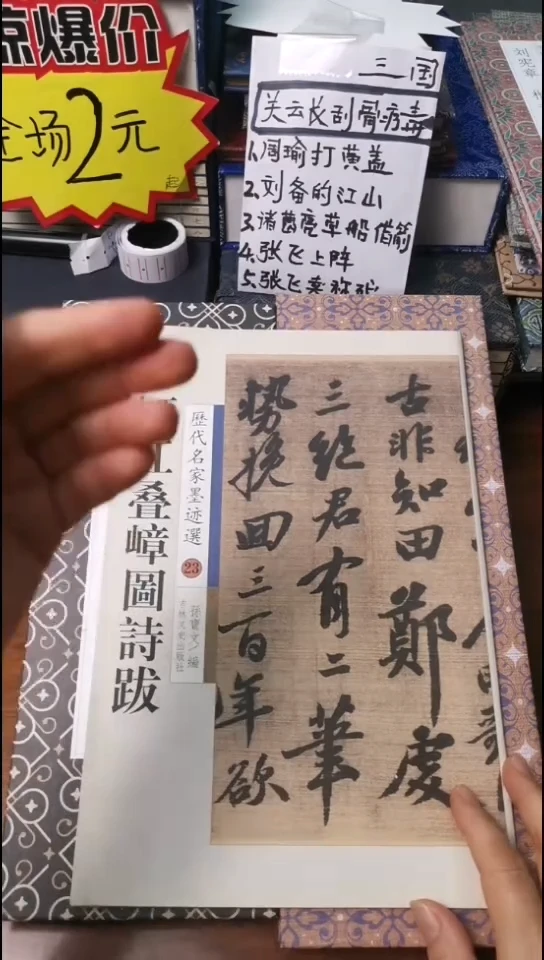 惊爆价
全场2元
起
三国
关云长刮骨疗毒
1.周瑜打黄盖
2.刘备的江山
3.诸葛亮草船借箭
4.张飞上阵
5.张飞卖
刘宪章
叠嶂圖詩跋
歷代名家墨迹選
23
孫寶文 编
吉林文史出版社
古非知田鄭虔
三絕君有二筆
势挽回三百年欲